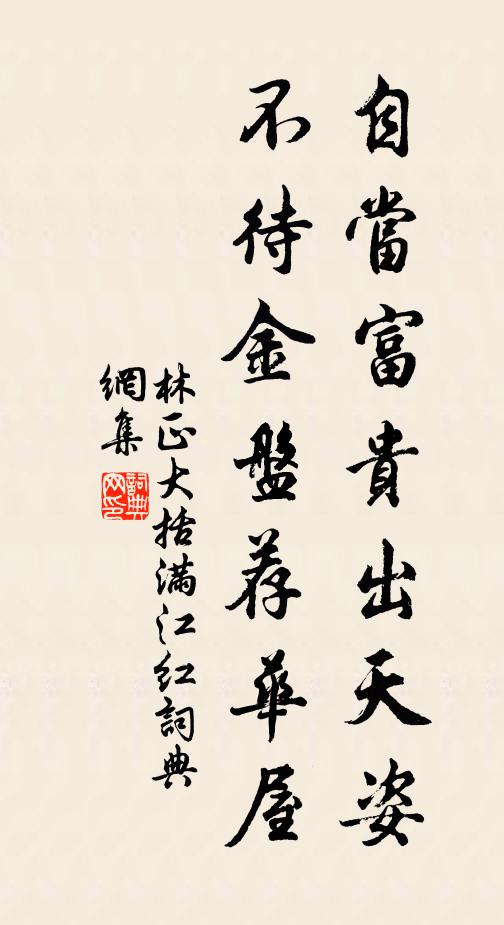 自當富貴出天姿
不待金盤荐華屋
林正大括满江红詞典
網集
詞典
网印